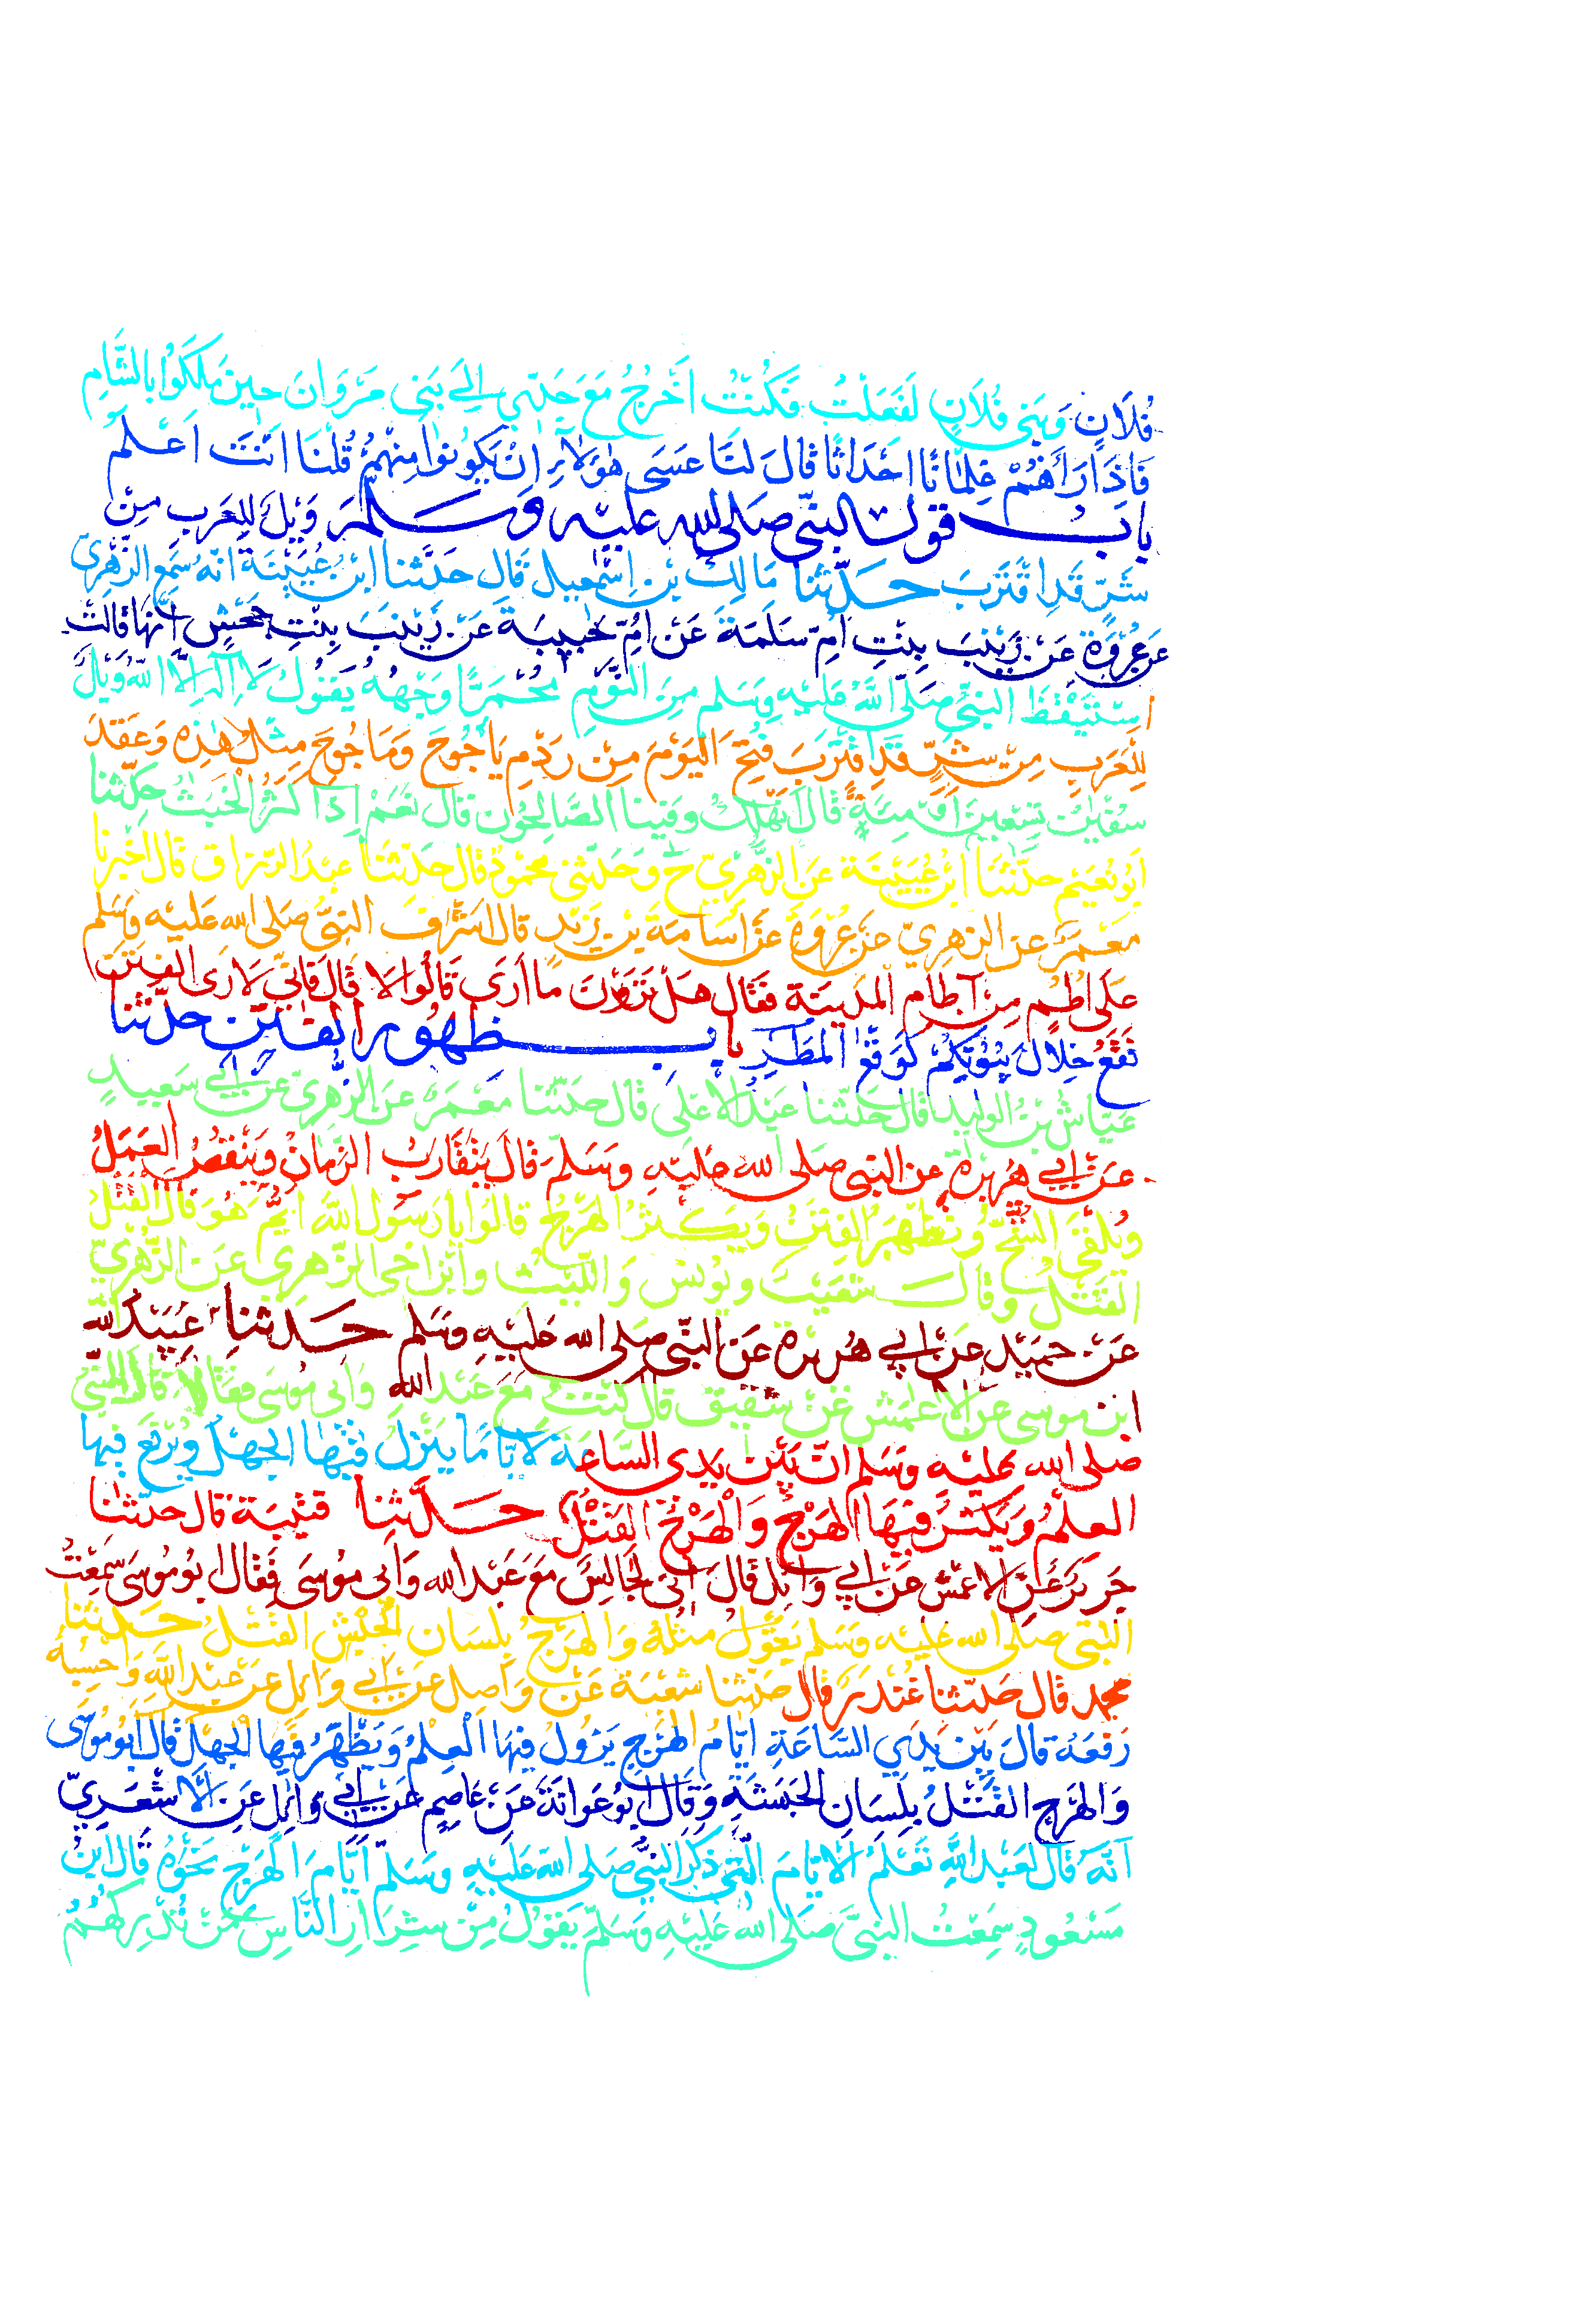 فُلَانٍ وَبَنِى فُلَانٍ لَفَعَلْتُ فَكُنْتُ اَخْرُجُ مَعَ جَدِّي اِلَى بَنِى مَرْوَانَ حِينَ مَلَكُوْا بِالشَّامِ
فَاِذَا رَاَهُمْ غِلْمَانًا اَحْدَاثًا قَالَ لَنَا عَسَى هٰؤُلَاءِ اَنْ يَكُونُوا مِنْهُمْ قُلْنَا اَنْتَ اَعْلَمُ
بابُ قول النبّى صَلى الله عليه وَسَلمَ وَيْلٌ لِلعَرَب مِنْ
شَرٍّ قَدِ اقْتَرَبَ حَدّثنا مَالِكُ بْنُ اِسْمٰعيل قَالَ حَدَّثنا ابْنُ عُيَيْنَةَ اَنّهُ سَمِعَ الزّهْرِيّ
عَنْ عُرْوَةَ عَنْ زَيْنَبَ بِنْتِ اُمِّ سَلَمَةَ عَنْ اُمِّ حَبِيبَةَ عَنْ زَيْنَبَ بِنْتِ جَحْشٍ اَنَّهَا قَالَتْ
اِسْتَيْقَظَ النبيّ صَلّى اللهُ عَلَيْهِ وَسَلم مِنَ النَّوْمِ مُحْمَرًّا وَجْهُهُ يَقُولُ لَا اِلٰهَ اِلَّا اللهُ وَيْلٌ
لِلْعَرَبِ مِنْ شَرٍّ قَدِ اقْتَرَبَ فُتِحَ الْيَوْمَ مِنْ رَدْمِ يَاجُوجَ وَمَاجُوجَ مِثْلُ هٰذِهِ وَعَقَدَ
سُفْيٰنُ تِسْعِينَ اَوْ مِئَةً قَالَ اَنَهْلِكُ وَفِينا الصَّالِحُونَ قَالَ نَعَمْ اِذَا كَثُرَ الخَبَثُ حَدّثنا
اَبُو نُعَيْمٍ حَدّثنَا ابْنُ عُيَيْنَة عَنِ الزُّهْرِيّ ح وَحَدّثنى محْمُودٌ قَال حَدّثَنا عبْدُ الرّزاق قَال اخْبرنا
مَعْمَرٌ عن الزهرِيّ عَنْ عُرْوَةَ عَنْ اُسَامَةَ بْنِ زَيْدٍ قال اَشْرَفَ النبِىُّ صَلى الله عَليْه وَسَلم
عَلَى اُطُمٍ مِنْ آطَامِ المَدينَة فقَال هَلْ تَرَوْنَ مَا اَرَى قَالُوا لا قَالَ فَاِنّي لَاَرَى الفِتَنَ
تَقَعُ خِلَالَ بُيُوْتِكُمْ كَوَقْعِ المَطَرِ بابُ ظهُور الفتَن حدّثنا
عَيّاشُ بْنُ الوليد قَال حَدّثنا عَبْدُ الاَعْلَى قَال حَدّثَنَا مَعْمَرٌ عَن الزُّهْرِيّ عَنْ سَعِيدٍ
عَنْ اَبِي هُرَيْرَةَ عن النبى صَلى الله عَليْهِ وسَلمَ قَال يَتَقَارَبُ الزَّمَانُ وَيَنْقُصُ العَمَلُ
وَيُلْقَى الشُّحُّ وَتَظْهَرُ الفِتَنُ وَيَكْثُرُ الهَرْجُ قَالُوا يَا رَسُول اللهِ اَيُّمَ هُوَ قَالَ القَتْلُ
القَتْلُ وَقَالَ شُعَيْبٌ وَيُونسُ وَاللّيْثُ وابْنُ اَخِى الزّهرِىّ عَن الزّهْرِيّ
عَنْ حمَيْدٍ عَنْ اَبِي هُرَيرَة عَنِ النبّى صَلى الله عَليْهِ وَسَلم حَدّثنا عُبَيْدُ الله
ابن مُوسى عن الاَعْمَش عَنْ شَقيق قَالَ كُنْتُ مَعَ عَبْد الله وَاَبى مُوسَى فقَالَا قَالَ النبيّ
صَلى الله عَليْه وَسَلم اِنّ بَيْن يَدَى السَّاعَةَ لَاَيّامًا يَنْزِلُ فيْهَا الجهْلُ وَيُرْفَعُ فِيهَا
العِلْمُ وَيَكْثُرُ فِيهَا الهَرْجُ وَالْهَرْجُ القَتْلُ حَدّثنا قُتيْبَة قَال حدّثنَا
جَرِيرٌ عَنِ الاَعْمَش عَنْ اَبِي وَائِلٍ قَالَ اِنّى لَجَالِسٌ مَعَ عَبْد الله وَاَبى مُوسَى فقَال اَبُو مُوسَى سَمِعْتُ
النبّى صَلى الله عَليْه وَسَلم يَقُولُ مثْلَهُ وَالهَرْجُ بِلِسَان الحَبْشِ القَتْلُ حَدّثنا
محمد قَال حَدّثنا غُنْدَرٌ قَال حَدّثنا شعْبَة عَنْ وَاصِل عَنْ اَبِي وَائِل عَنْ عَبْد اللهِ وَاَحْسِبُهُ
رَفَعَهُ قَالَ بَيْنَ يَدَيِ السَّاعَةِ اَيّامُ الهَرْج يَزُولُ فِيهَا الْعِلْمُ وَيَظْهَرُ فِيهَا الْجَهْلُ قَالَ اَبُو مُوْسَى
وَالهَرْج القَتْلُ بِلِسَانِ الحَبَشَةِ وَقَالَ اَبُو عَوَانَةَ عَنْ عَاصِمٍ عَنْ اَبِي وَائِل عَنِ الْاَشْعَرِيّ
اَنّهُ قَال لعَبْد اللهِ تَعْلَمُ الاَيّامَ الَّتِي ذَكَرَ النبيُّ صَلى الله عَلَيْهِ وَسَلّمَ اَيَّامَ الْهَرْجِ نَحْوَهُ قَال ابْنُ
مَسْعُودٍ سَمِعْتُ النبيَّ صَلى اللهُ عَلَيْهِ وَسَلمَ يَقُوْلُ مِنْ شِرَارِ النَّاسِ مَنْ تُدْرِكُهُمُ